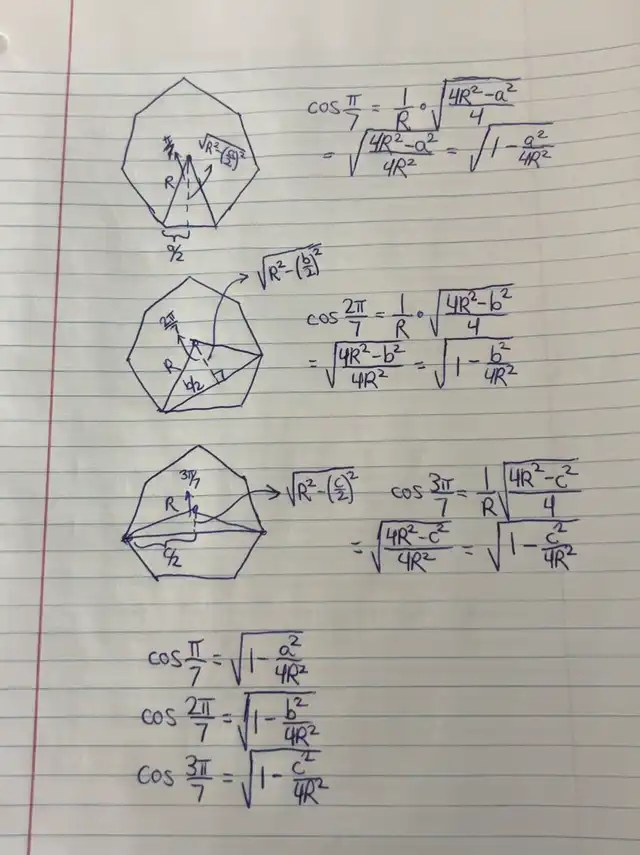 π/7
√(R²-(a/2)²)
R
a/2
cos π/7 = 1/R • √((4R²-a²)/4)
= √((4R²-a²)/4R²) = √(1-a²/4R²)
√(R²-(b/2)²)
2π/7
R
b/2
cos 2π/7 = 1/R • √((4R²-b²)/4)
= √((4R²-b²)/4R²) = √(1-b²/4R²)
3π/7
R
c/2
√(R²-(c/2)²)
cos 3π/7 = 1/R √((4R²-c²)/4)
= √((4R²-c²)/4R²) = √(1-c²/4R²)
cos π/7 = √(1-a²/4R²)
cos 2π/7 = √(1-b²/4R²)
cos 3π/7 = √(1-c²/4R²)